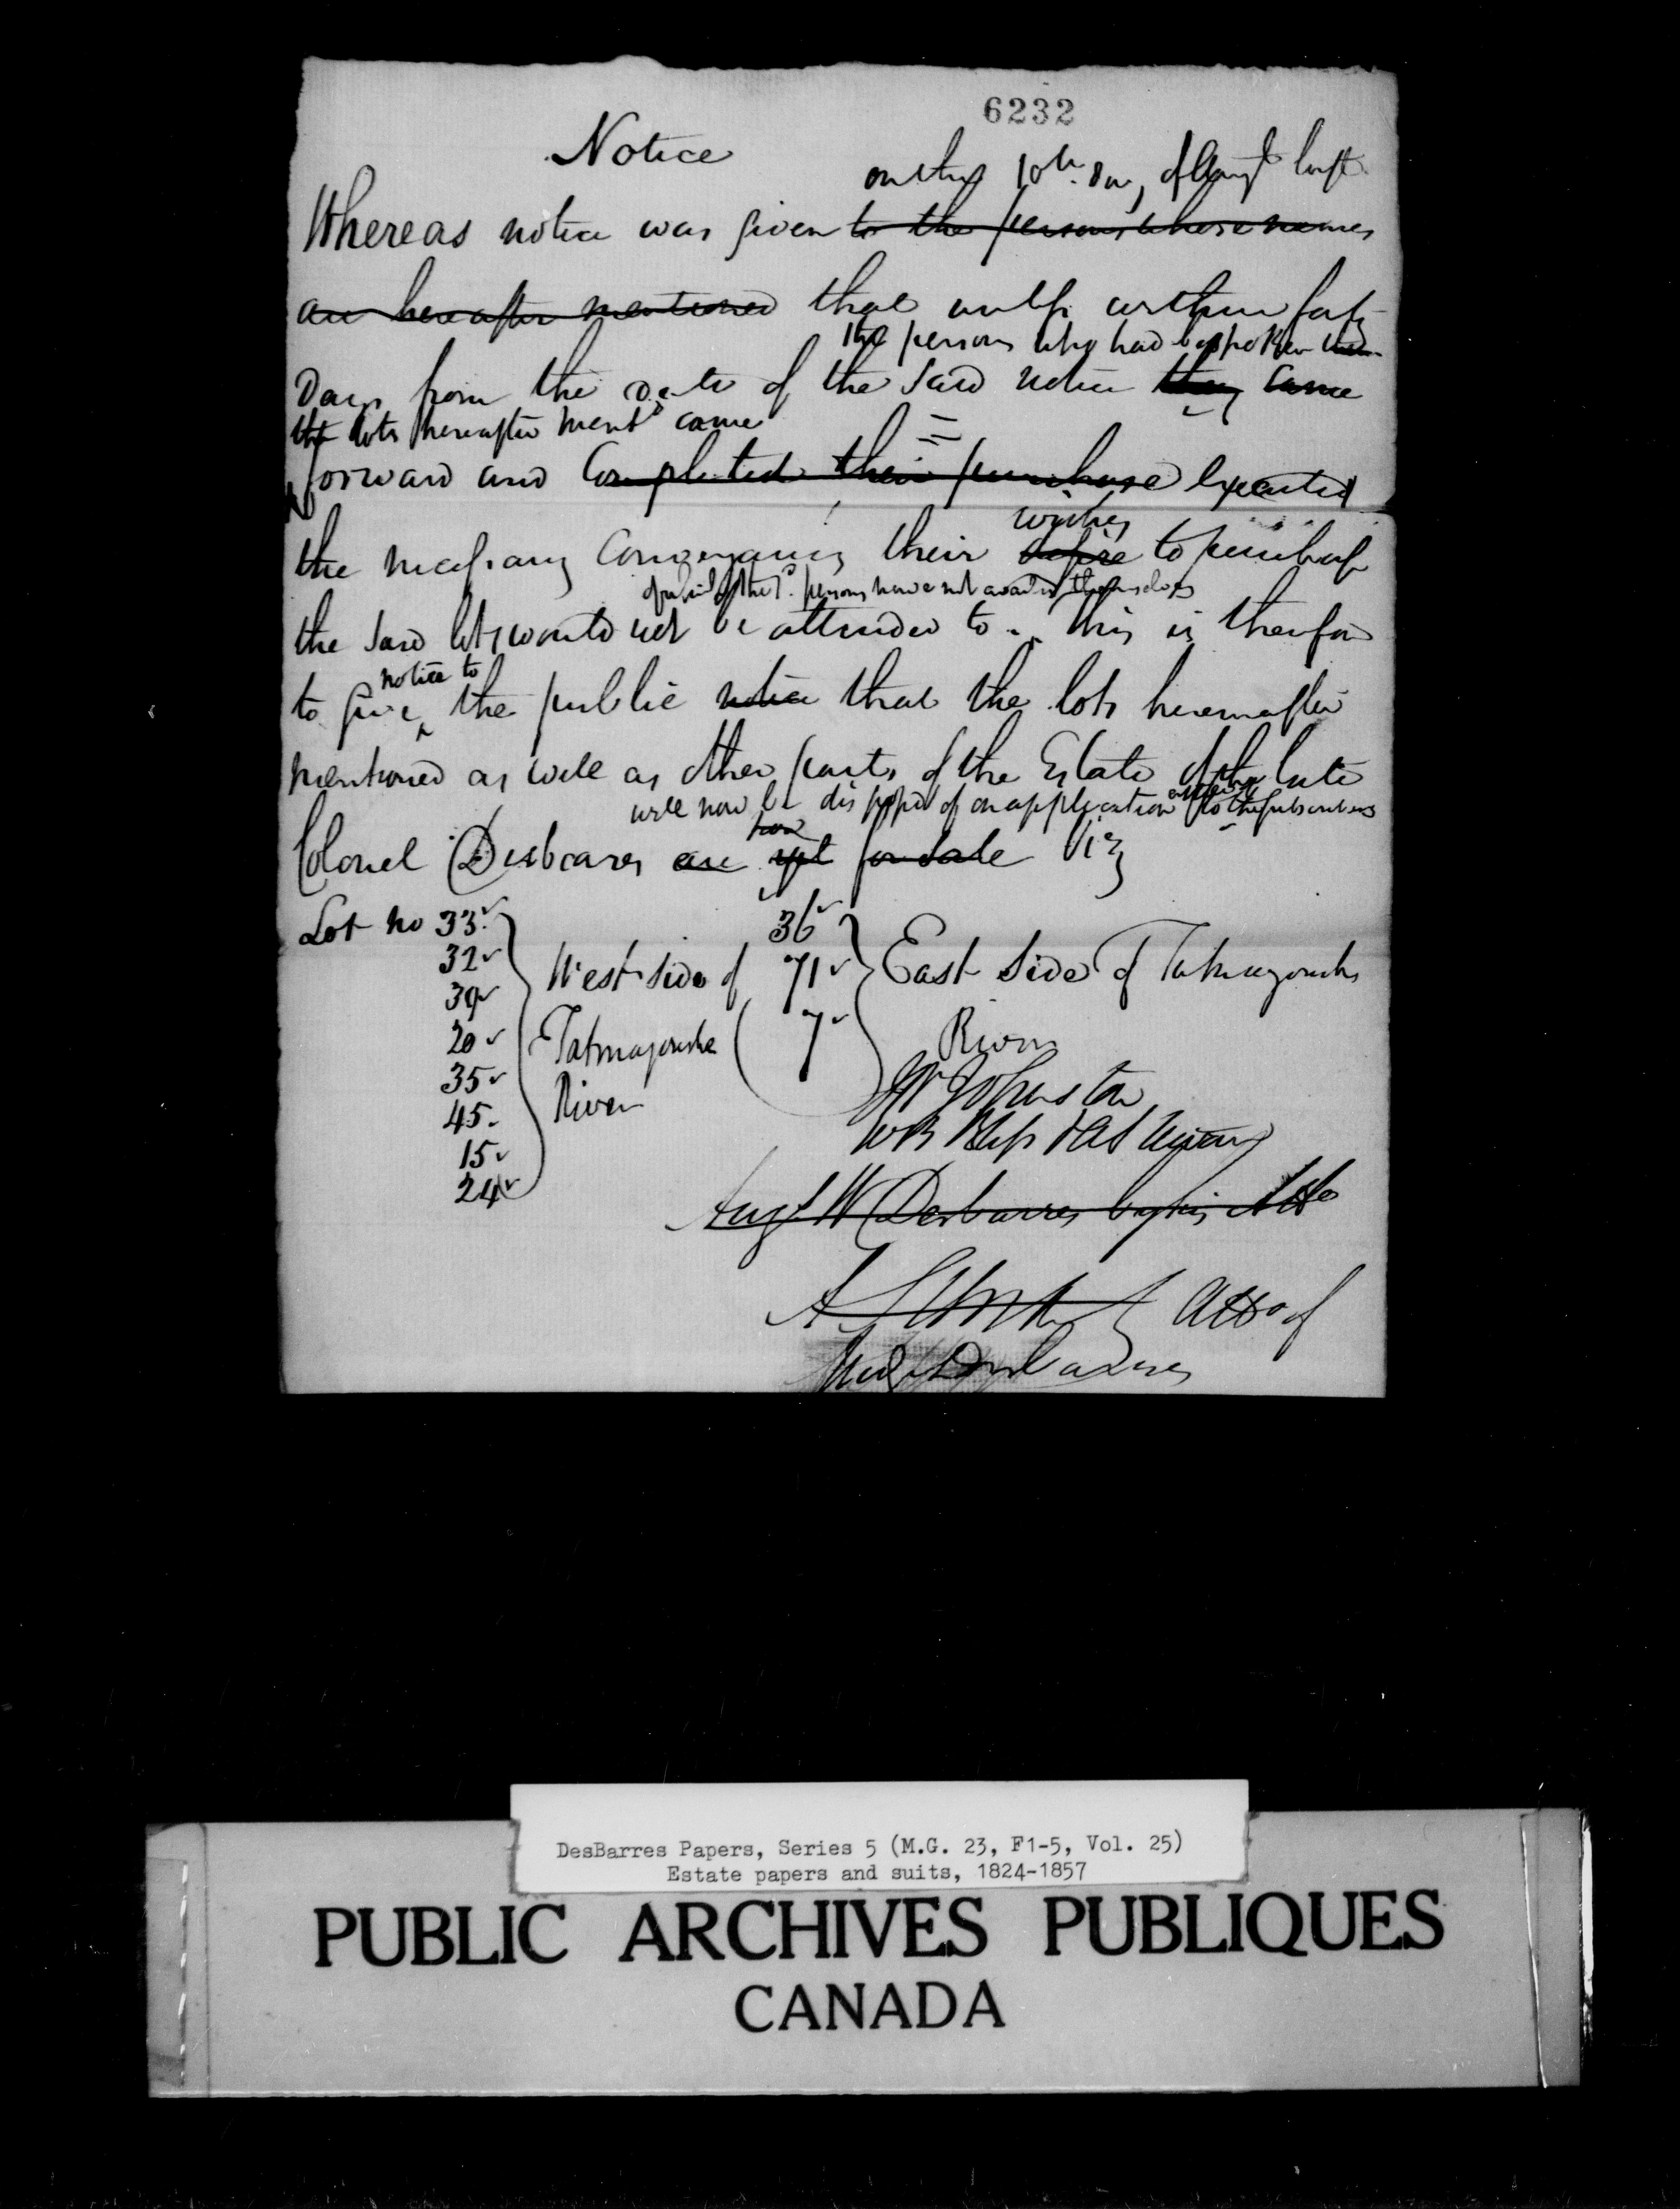 6232
Notice
on the 10th. Day of Augt last
Whereas notice was given to the persons whose names
are hereafter mentioned that unless within forty
the persons who had bespoken them
Days from the date of the said notice they came
the lots hereafter mentd came
forward and Completed their purchase Executed
wishes
the necessary Conveyances their desire to purchase
of which the sd. persons have not availed themselves
the said lots would not be attended to. This is therefore
notice to
to give the public notice that the lots hereinafter
mentioned as well as other parts of the Estate of the late
will now be disposed of on application to the subscribers
now
Colonel Desbarres are yet for Sale Viz
Lot no 33
36
32
West side of
71
East Side of Tatmagouche
39
20
Tatmagouche
7
River
35
River
45
15
24
Johnston
WB Bliss
Augt W Desbarres by his Atto
Atto of
Desbarres
DesBarres Papers, Series 5 (M.G. 23, F1-5, Vol. 25)
Estate papers and suits, 1824-1857
PUBLIC ARCHIVES PUBLIQUES
CANADA